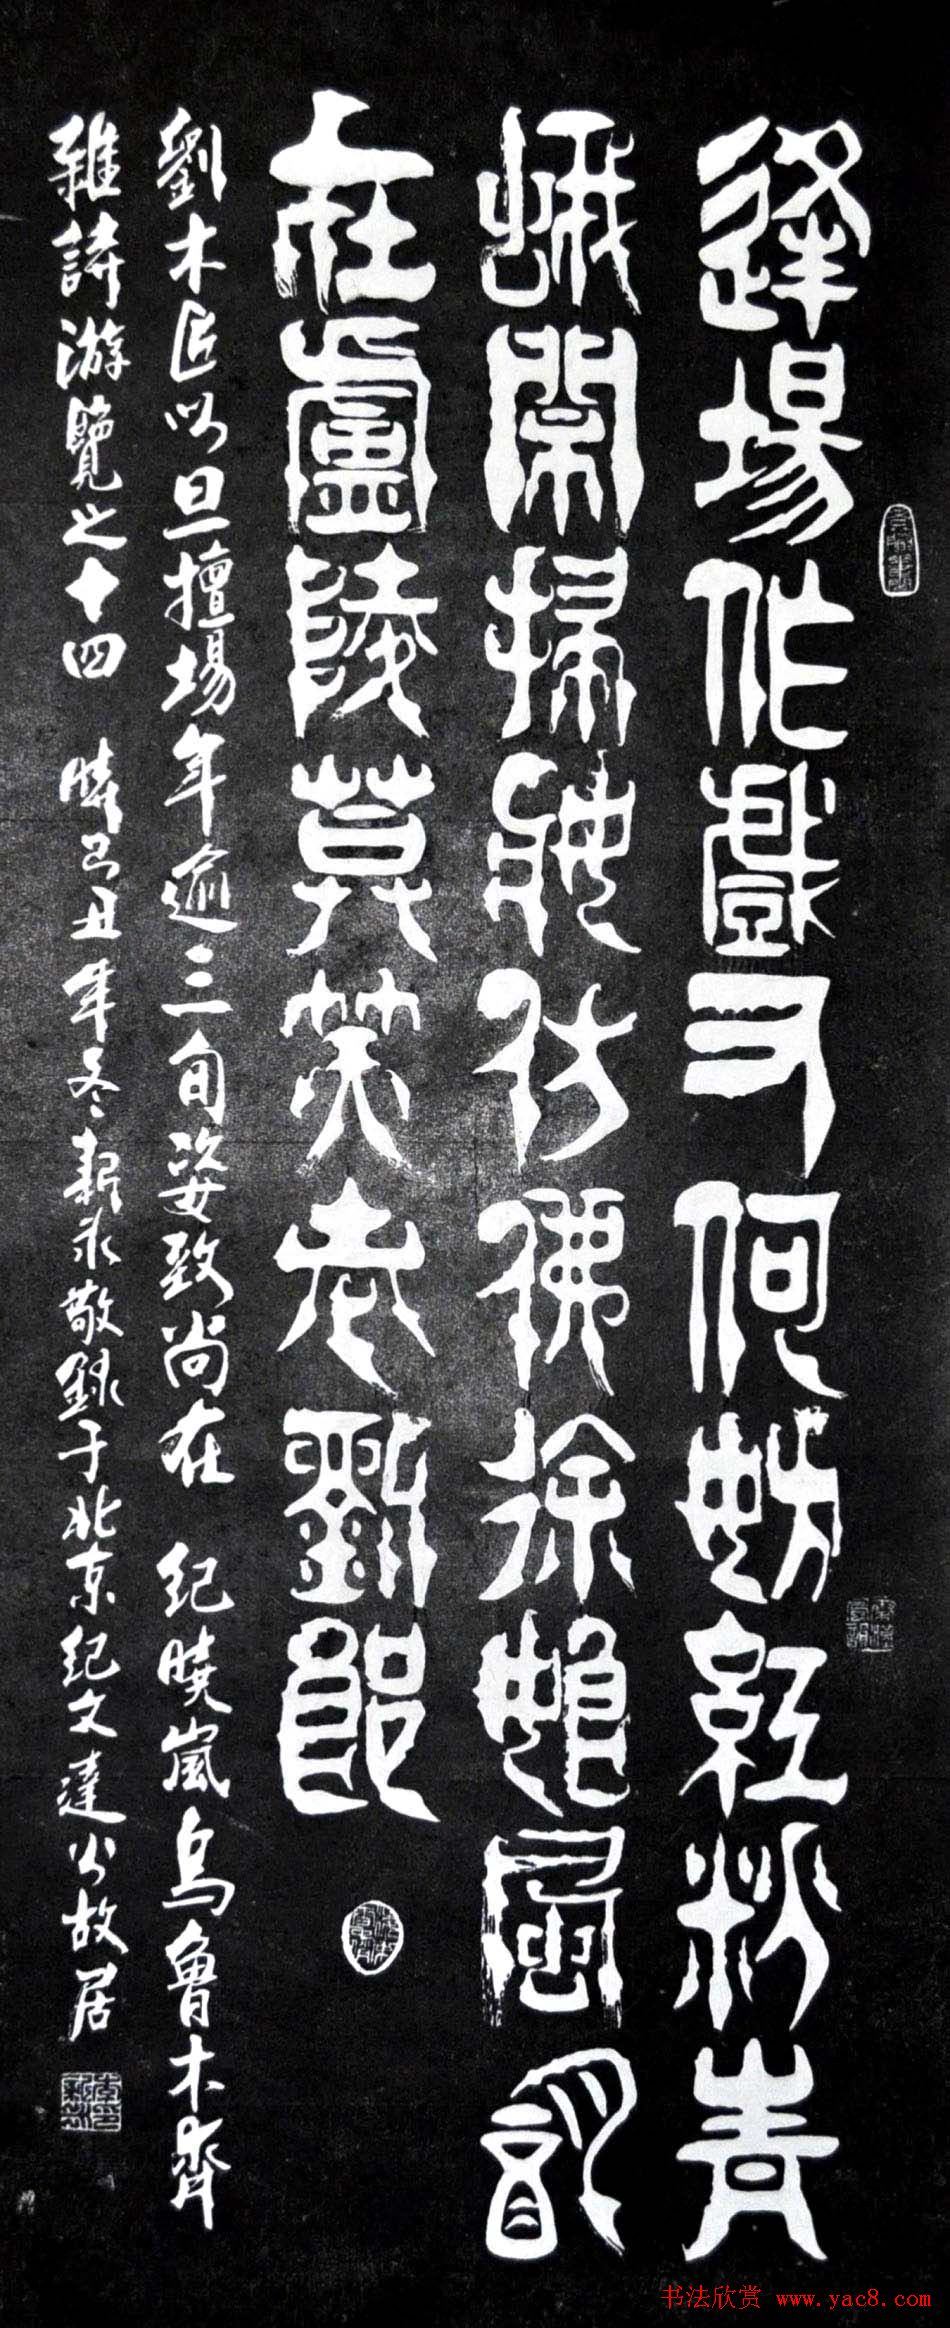 逢場作戲又何妨紅粉青
蛾鬧掃妝彷佛徐娘風韵
在盧陵莫笑老劉郎
劉木匠以旦擅場年逾三旬姿致尚在 紀曉嵐烏魯木齊
雜詩游覽之十四 時己丑年冬新永敬錄于北京紀文達公故居
书法欣赏 www.yac8.com